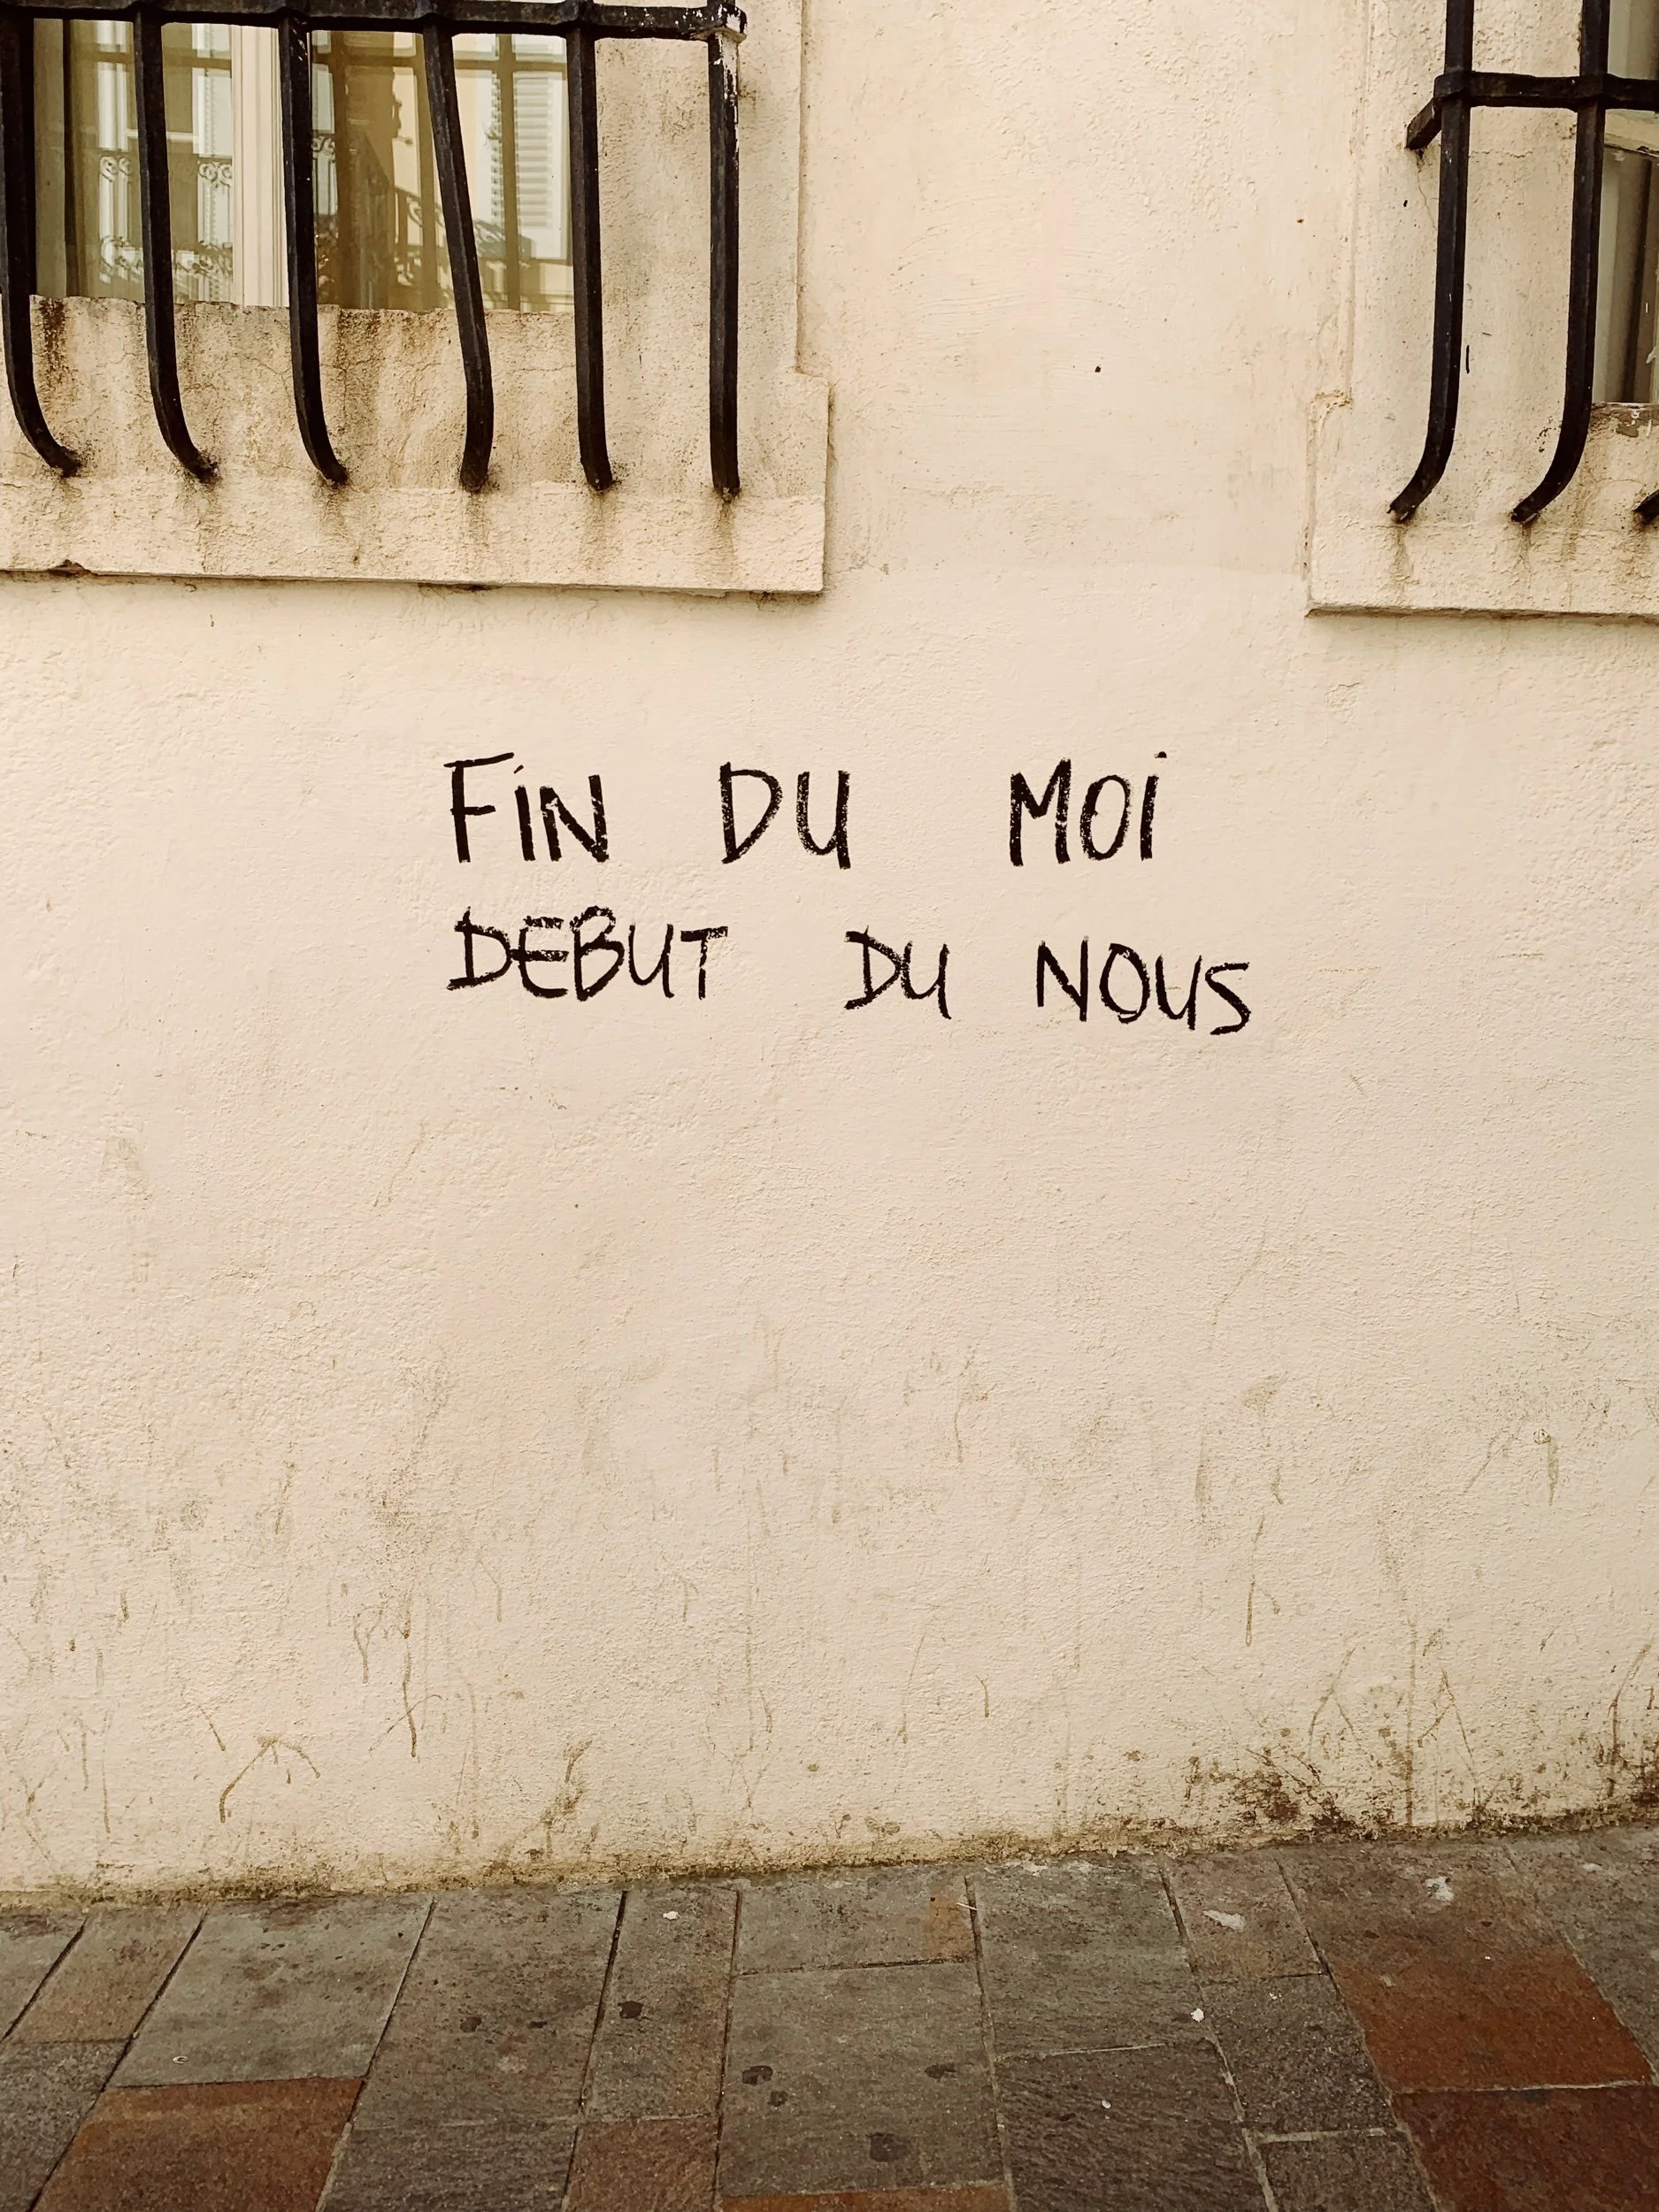 FiN DU MOi
DEBUT DU NOUS